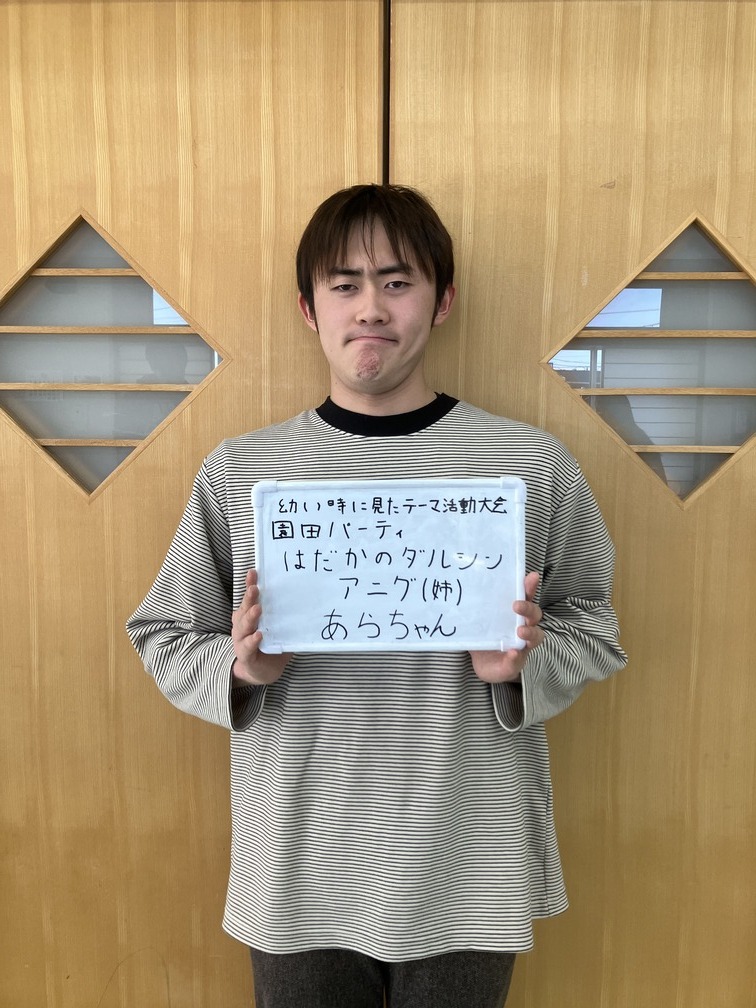 幼い時に見たテーマ活動大会
園田パーティ
はだかのダルシン
アニグ(姉)
あらちゃん